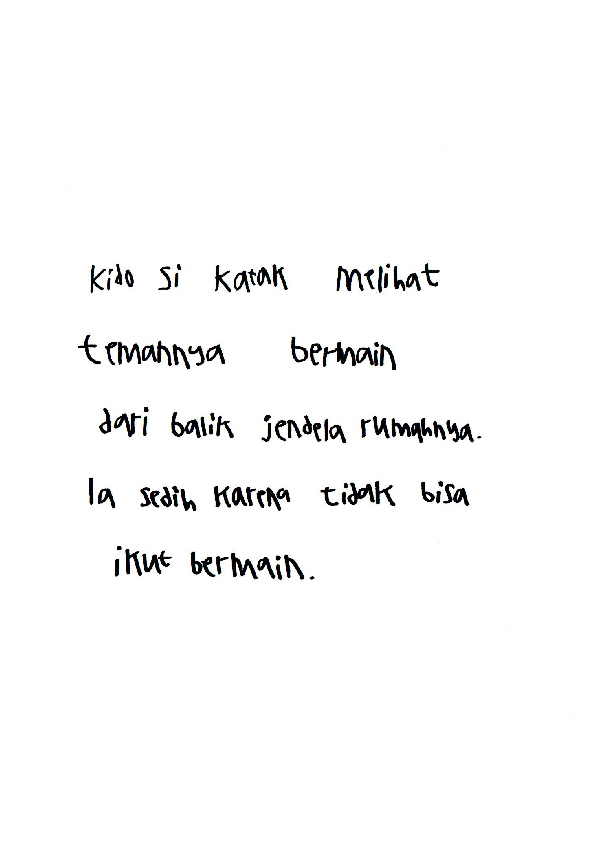 Kido si katak melihat
temannya bermain
dari balik jendela rumahnya.
Ia sedih karena tidak bisa
ikut bermain.